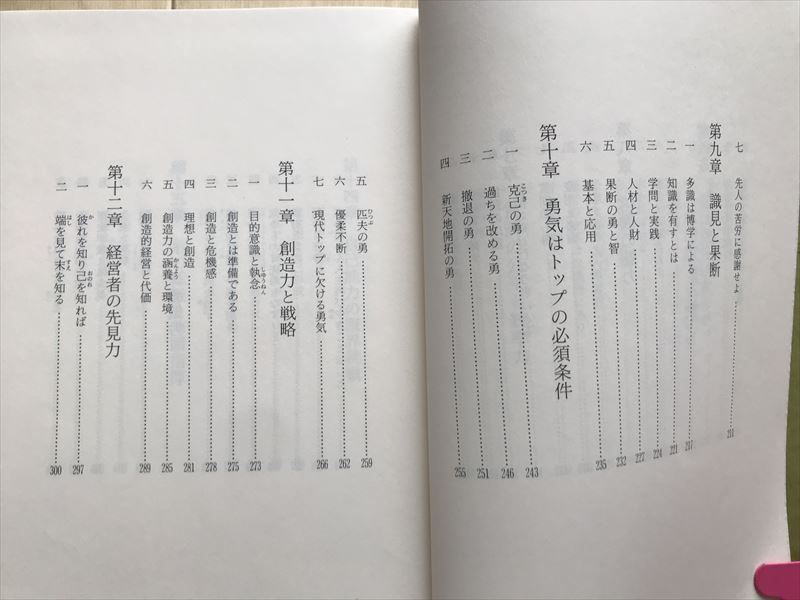 七 先人の苦労に感謝せよ 211
第九章 識見と果断
一 多識は博学による 217
二 知識を有すとは 221
三 学問と実践 224
四 人材と人財 227
五 果断の勇と智 232
六 基本と応用 235
第十章 勇気はトップの必須条件
一 克己の勇 243
二 過ちを改める勇 246
三 撤退の勇 251
四 新天地開拓の勇 255
五 匹夫の勇 259
六 優柔不断 262
七 現代トップに欠ける勇気 266
第十一章 創造力と戦略
一 目的意識と執念 273
二 創造とは準備である 275
三 創造と危機感 278
四 理想と創造 281
五 創造力の涵養と環境 285
六 創造的経営と代価 289
第十二章 経営者の先見力
一 彼れを知り己を知れば 297
二 端を見て末を知る 300